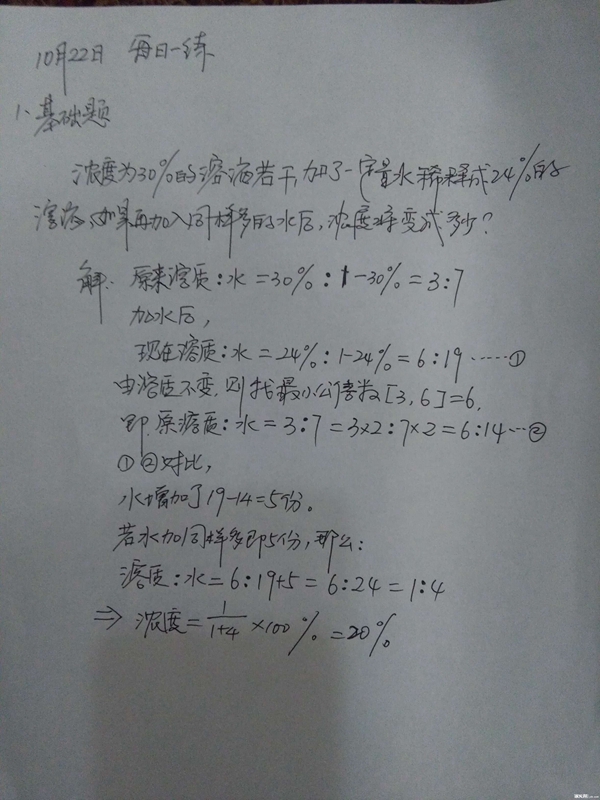 10月22日 每日一练
1、基础题
浓度为30%的溶液若干,加了一定量水稀释成24%的
溶液,如果再加入同样多的水后,浓度将变成多少?
解: 原来溶质:水=30%:1-30%=3:7
加水后,
现在溶质:水=24%:1-24%=6:19……①
由溶质不变,则找最小公倍数[3,6]=6,
即,原溶质:水=3:7=3×2:7×2=6:14…②
①②对比,
水增加了19-14=5份。
若水加同样多即5份,那么:
溶质:水=6:19+5=6:24=1:4
⇒浓度=1/(1+4)×100%=20%